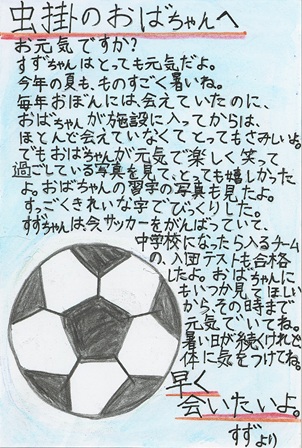 虫掛のおばちゃんへ
お元気ですか?
すずちゃんはとっても元気だよ。
今年の夏も、ものすごく暑いね。
毎年おぼんには、会えていたのに、
おばちゃんが施設に入ってからは、
ほとんど会えていなくてとってもさみしいよ。
でもおばちゃんが元気で楽しく笑って
過ごしている写真を見て、とっても嬉しかった
よ。おばちゃんの習字の写真も見たよ。
すっごくきれいな字でびっくりした。
すずちゃんは今、サッカーをがんばっていて、
中学校になったら入るチーム
の、入団テストも合格
したよ。おばちゃんに
もいつか見てほしい
から、その時まで
元気でいてね。
暑い日が続くけれど、
体に気をつけてね。
早く
会いたいよ。
すずより